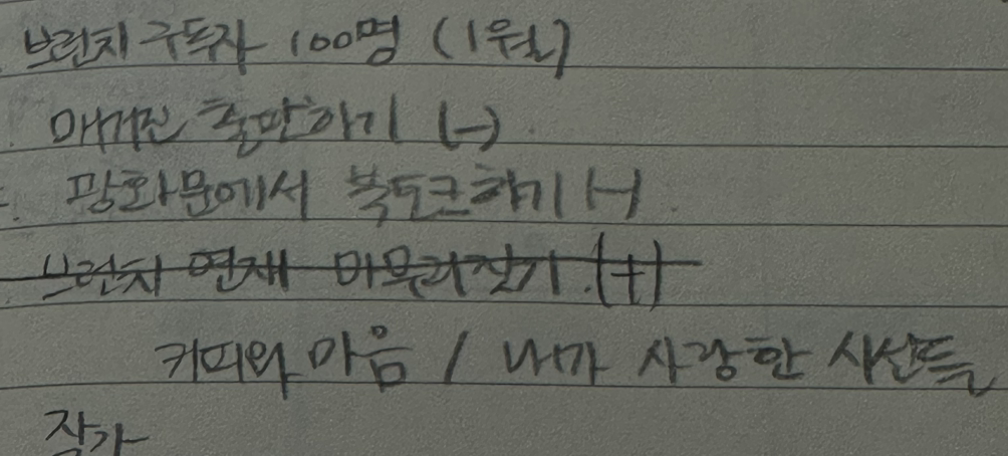 브런치 구독자 100명 (1월)
매거진 출판하기 (-)
광화문에서 북토크하기 (-)
브런치 연재 마무리짓기 (+)
커피와 마음 / 내가 사랑한 시선들
작가